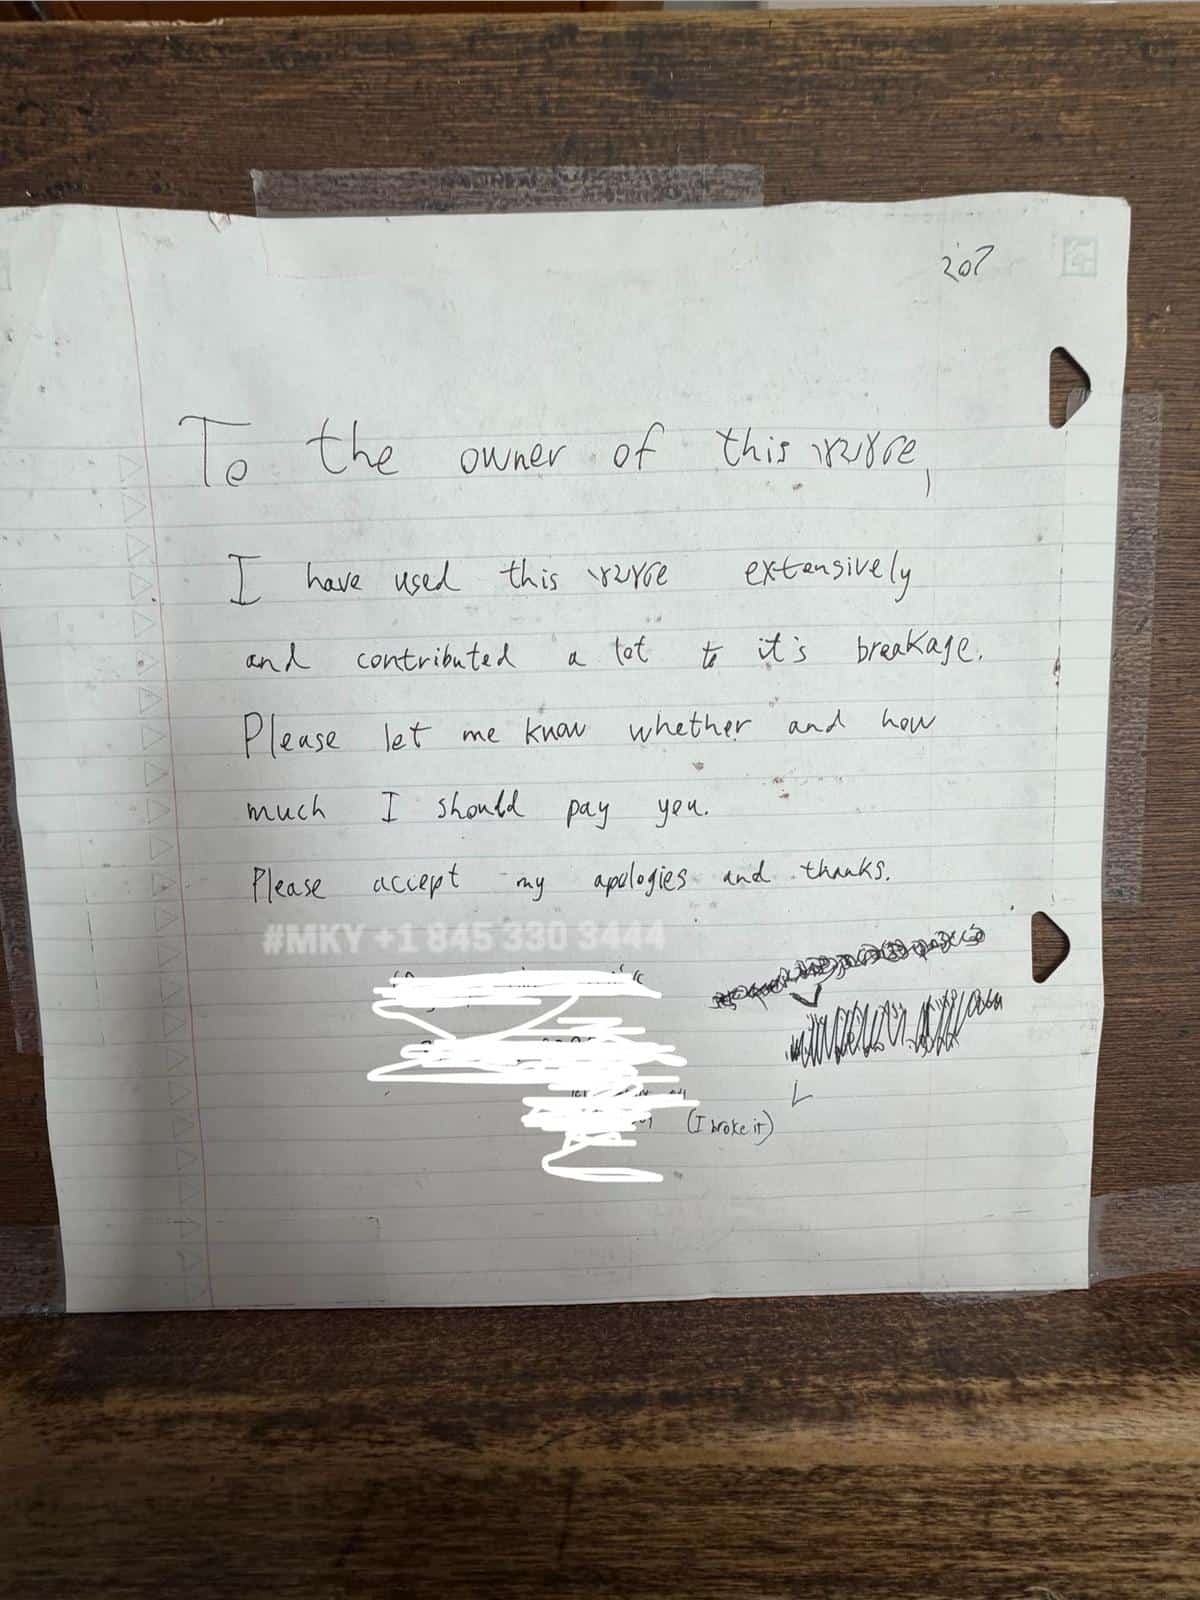 בס"ד
To the owner of this שטענדער,
I have used this שטענדער extensively
and contributed a lot to it's breakage.
Please let me know whether and how
much I should pay you.
Please accept my apologies and thanks.
#MKY +1 845 330 3444
(I broke it)